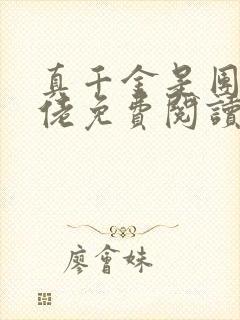 真千金是
佬免費閱讀
廖會妹